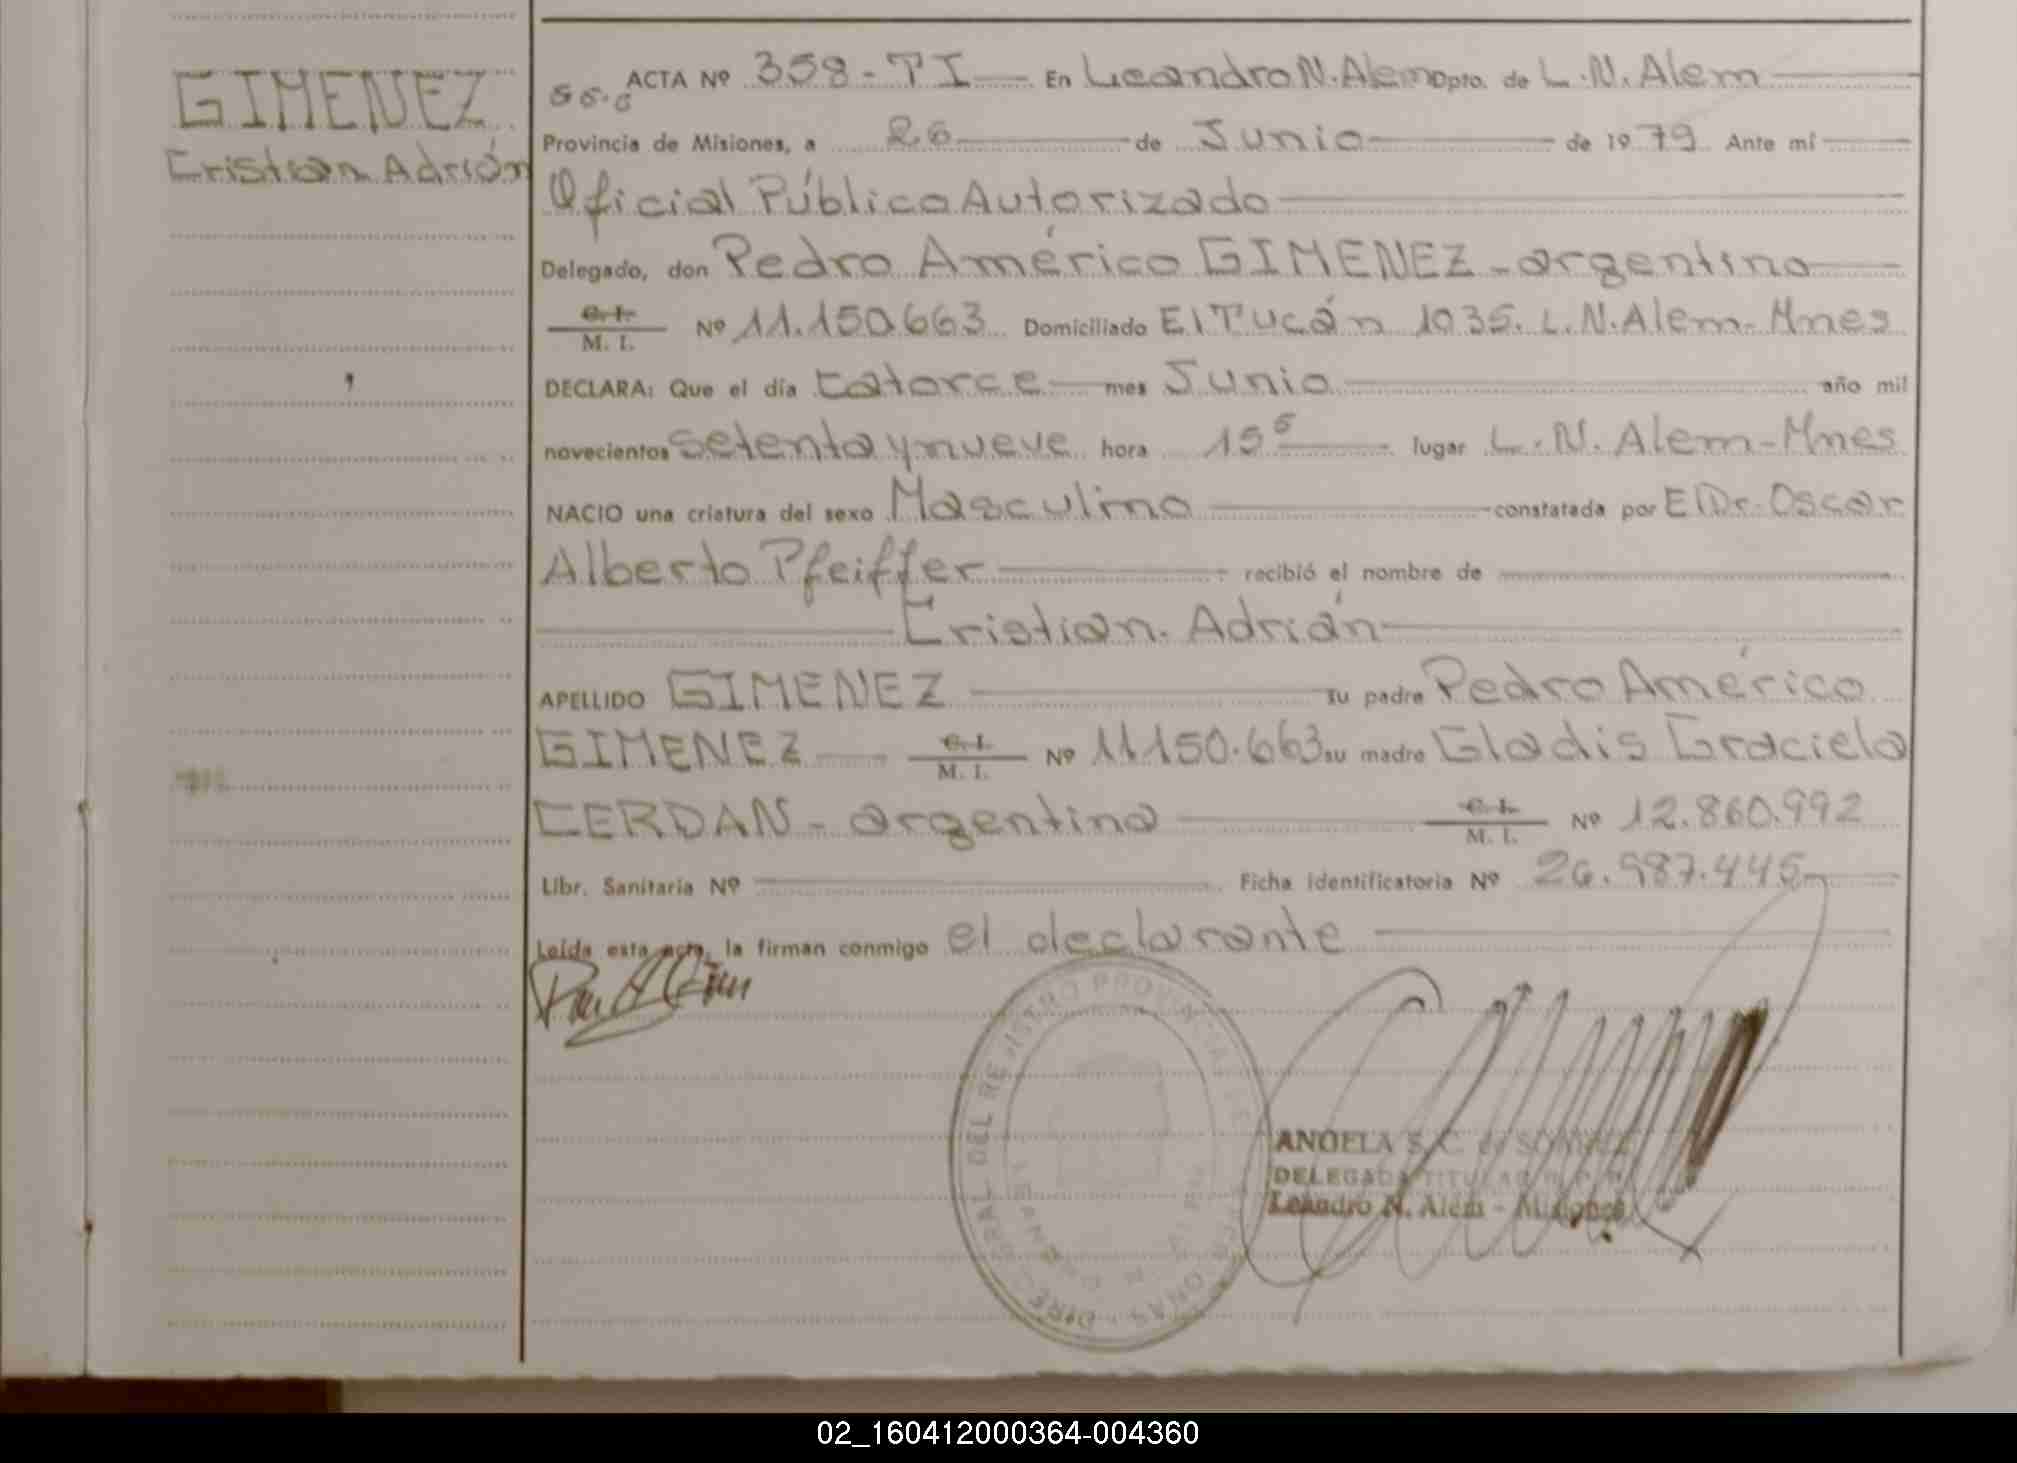 GIMENEZ
Cristian Adrián
ACTA Nº 358 - TI En Leandro N. Alem Dpto. de L. N. Alem
Provincia de Misiones, a 26 de Junio de 1979. Ante mí
Oficial Público Autorizado
Delegado, don Pedro Américo GIMENEZ - argentino
C. I. / M. I. Nº 11.150.663 Domiciliado El Tucán 1035. L. N. Alem - Mnes
DECLARA: Que el día catorce mes Junio año mil
novecientos setenta y nueve hora 15 lugar L. N. Alem - Mnes
NACIO una criatura del sexo Masculino constatada por El Dr. Oscar
Alberto Pfeiffer recibió el nombre de
Cristian Adrián
APELLIDO GIMENEZ su padre Pedro Américo
GIMENEZ C. I. / M. I. Nº 11.150.663 su madre Gladis Graciela
CERDAN - argentina C. I. / M. I. Nº 12.860.992
Libr. Sanitaria Nº Ficha identificatoria Nº 26.987.445
Leída esta acta, la firman conmigo el declarante
DEL REGISTRO PROVINCIAL DE
ANGELA S. C. de
DELEGADA TITULAR
Leandro N. Alem - Misiones
02_160412000364-004360